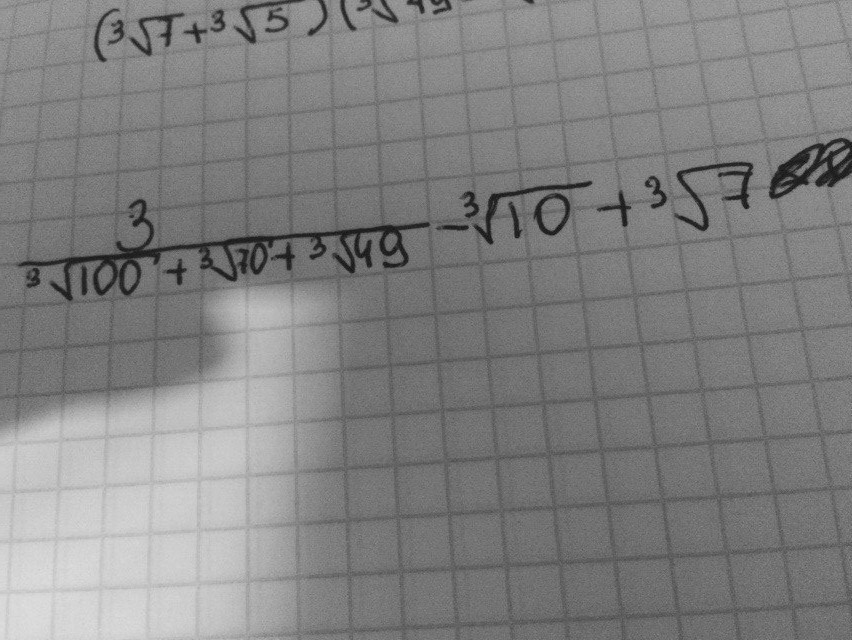 (³√7 + ³√5)(³√49
3
³√100 + ³√70 + ³√49 - ³√10 + ³√7